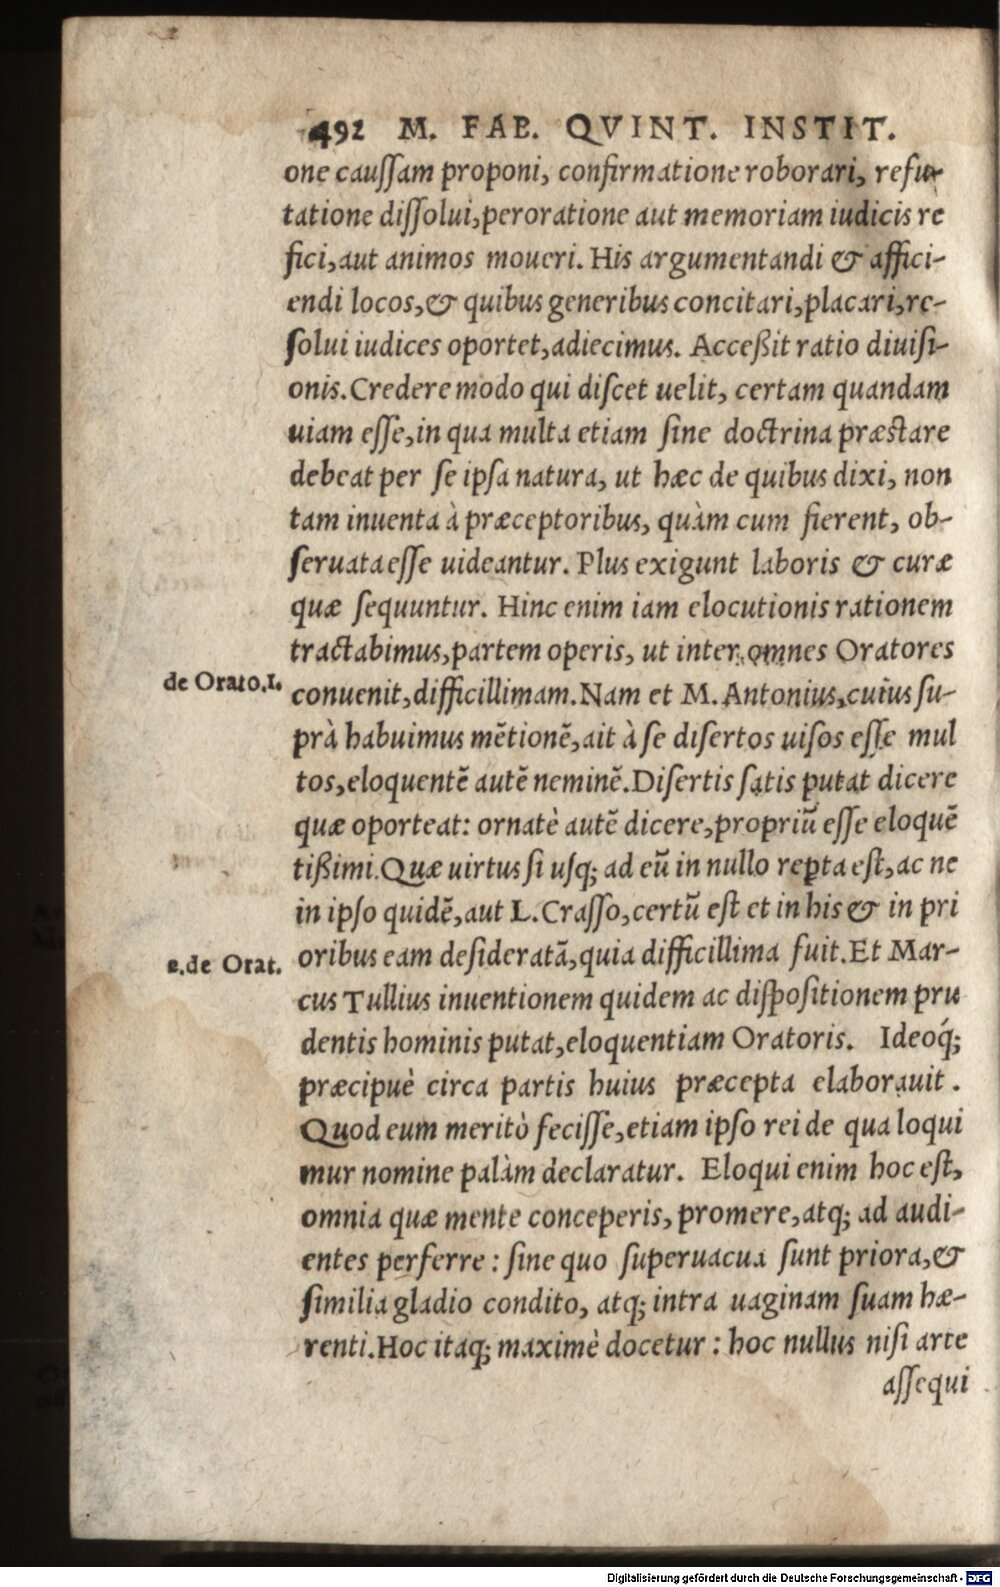 492 M. FAB. QVINT. INSTIT.
one cauſſam proponi, confirmatione roborari, refu-
tatione diſſolui, peroratione aut memoriam iudicis re
fici, aut animos moueri. His argumentandi & affici-
endi locos, & quibus generibus concitari, placari, re-
ſolui iudices oportet, adiecimus. Acceßit ratio diuiſi-
onis. Credere modo qui diſcet uelit, certam quandam
uiam eſſe, in qua multa etiam ſine doctrina præſtare
debeat per ſe ipſa natura, ut hæc de quibus dixi, non
tam inuenta à præceptoribus, quàm cum fierent, ob-
ſeruata eſſe uideantur. Plus exigunt laboris & curæ
quæ ſequuntur. Hinc enim iam elocutionis rationem
tractabimus, partem operis, ut inter omnes Oratores
de Orato.1.
conuenit, difficillimam. Nam et M. Antonius, cuius ſu-
prà habuimus mētionē, ait à ſe diſertos uiſos eſſe mul
tos, eloquentē autē neminē. Diſertis ſatis putat dicere
quæ oporteat: ornatè autē dicere, propriū eſſe eloquē
tißimi. Quæ uirtus ſi uſq; ad eū in nullo reꝑta eſt, ac ne
in ipſo quidē, aut L. Craſſo, certū eſt et in his & in pri
2.de Orat.
oribus eam deſideratā, quia difficillima fuit. Et Mar-
cus Tullius inuentionem quidem ac diſpoſitionem pru
dentis hominis putat, eloquentiam Oratoris. Ideoq́;
præcipuè circa partis huius præcepta elaborauit.
Quod eum meritò feciſſe, etiam ipſo rei de qua loqui
mur nomine palàm declaratur. Eloqui enim hoc eſt,
omnia quæ mente conceperis, promere, atq; ad audi-
entes perferre: ſine quo ſuperuacua ſunt priora, &
ſimilia gladio condito, atq; intra uaginam ſuam hæ-
renti. Hoc itaq; maximè docetur: hoc nullus niſi arte
aſſequi
Digitalisierung gefördert durch die Deutsche Forschungsgemeinschaft - DFG